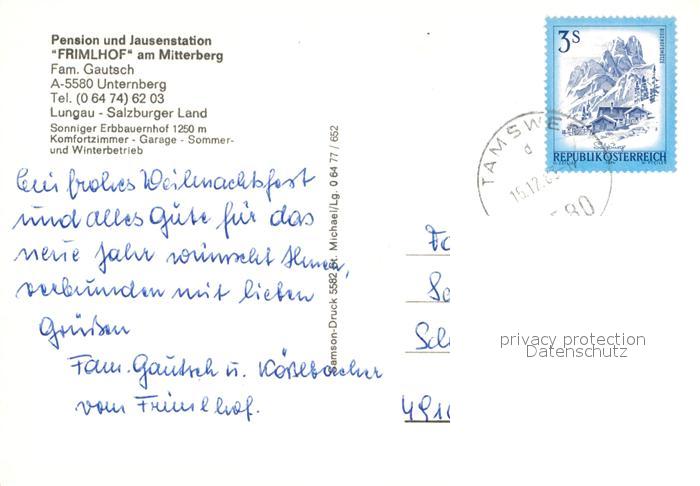 Pension und Jausenstation
"FRIMLHOF" am Mitterberg
Fam. Gautsch
A-5580 Unternberg
Tel. (0 64 74) 62 03
Lungau - Salzburger Land
Sonniger Erbbauernhof 1250 m
Komfortzimmer - Garage - Sommer-
und Winterbetrieb
Ein frohes Weihnachtsfest
und alles Gute für das
neue Jahr wünscht Ihnen,
verbunden mit lieben
Grüßen
Fam. Gautsch u.
vom Frimlhof.
Samson-Druck 5582 St. Michael/Lg. 0 64 77 / 652
3 S
BISCHOFSMÜTZE
Salzburg
REPUBLIK ÖSTERREICH
TAMSWE
d
15.12.
580
Fa
Sch
491
privacy protection
Datenschutz